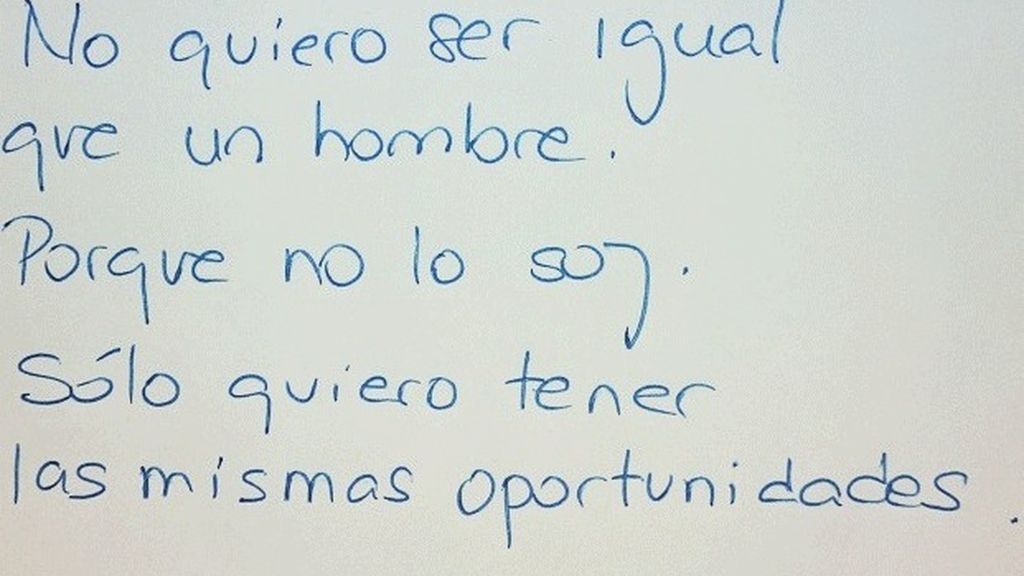 No quiero ser igual
que un hombre.
Porque no lo soy.
Sólo quiero tener
las mismas oportunidades.